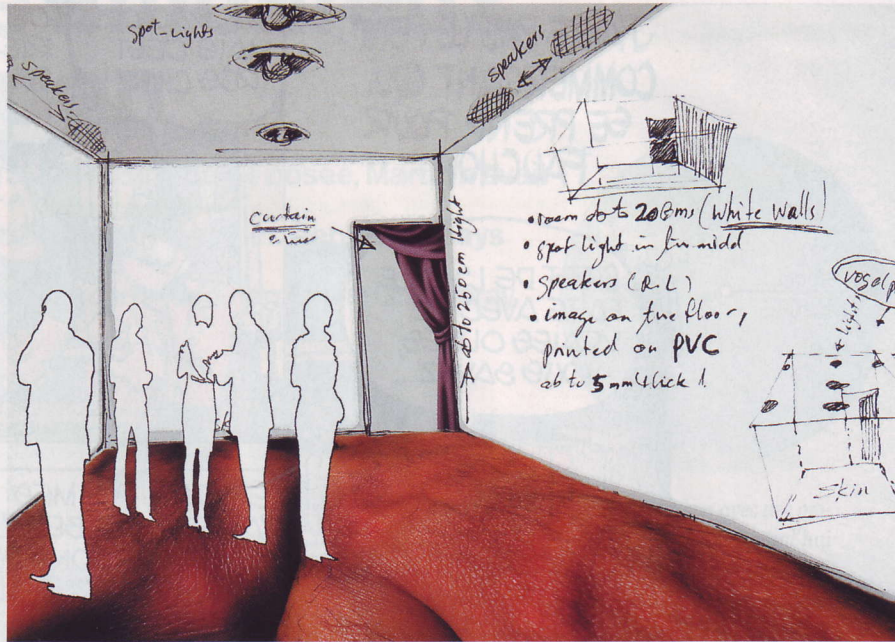 spot-lights
speakers
speakers
curtain
ab to 250 cm hight
• room ab to 20 (White Walls)
• spot light in
• speakers (R.L)
• image on the floor,
printed on PVC
ab to 5 mm thick!
light
Skin